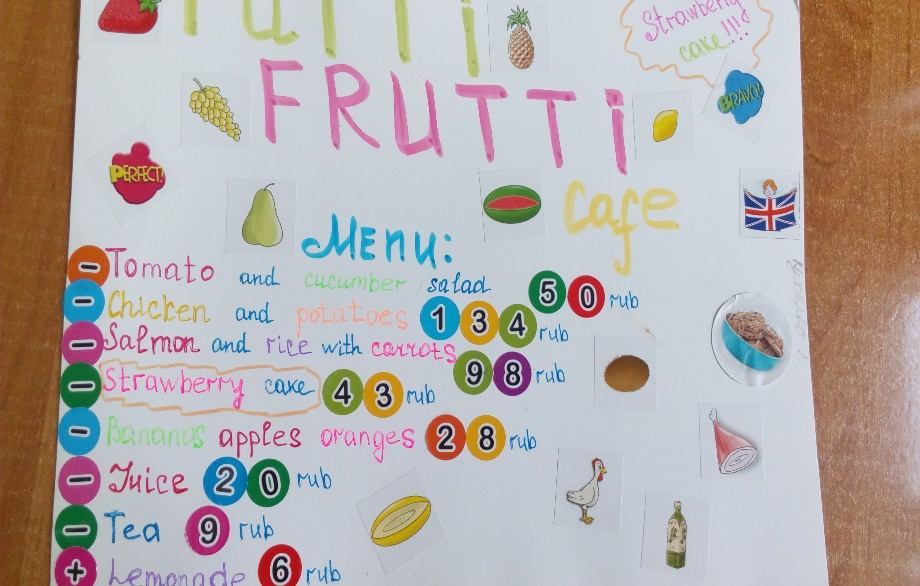 TUTTI
Strawberry
cake!!!
FRUTTI
BRAVO!
PERFECT!
Cafe
Menu:
- Tomato and cucumber salad 50 rub
- Chicken and potatoes 134 rub
- Salmon and rice with carrots 98 rub
- Strawberry cake 43 rub
- Bananas apples oranges 28 rub
- Juice 20 rub
- Tea 9 rub
+ Lemonade 6 rub